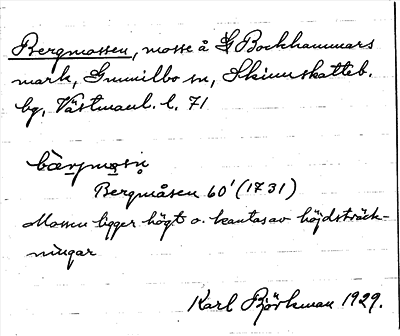 Bergmossen, mosse å St Bockhammars
mark, Gunnilbo sn, Skinnskatteb.
bg, Västmanl. l. 71
bærjmosn
Bergmåsen 60' (1731)
Mossen ligger högt o. kantas av höjdsträck-
ningar
Karl Björkman 1929.